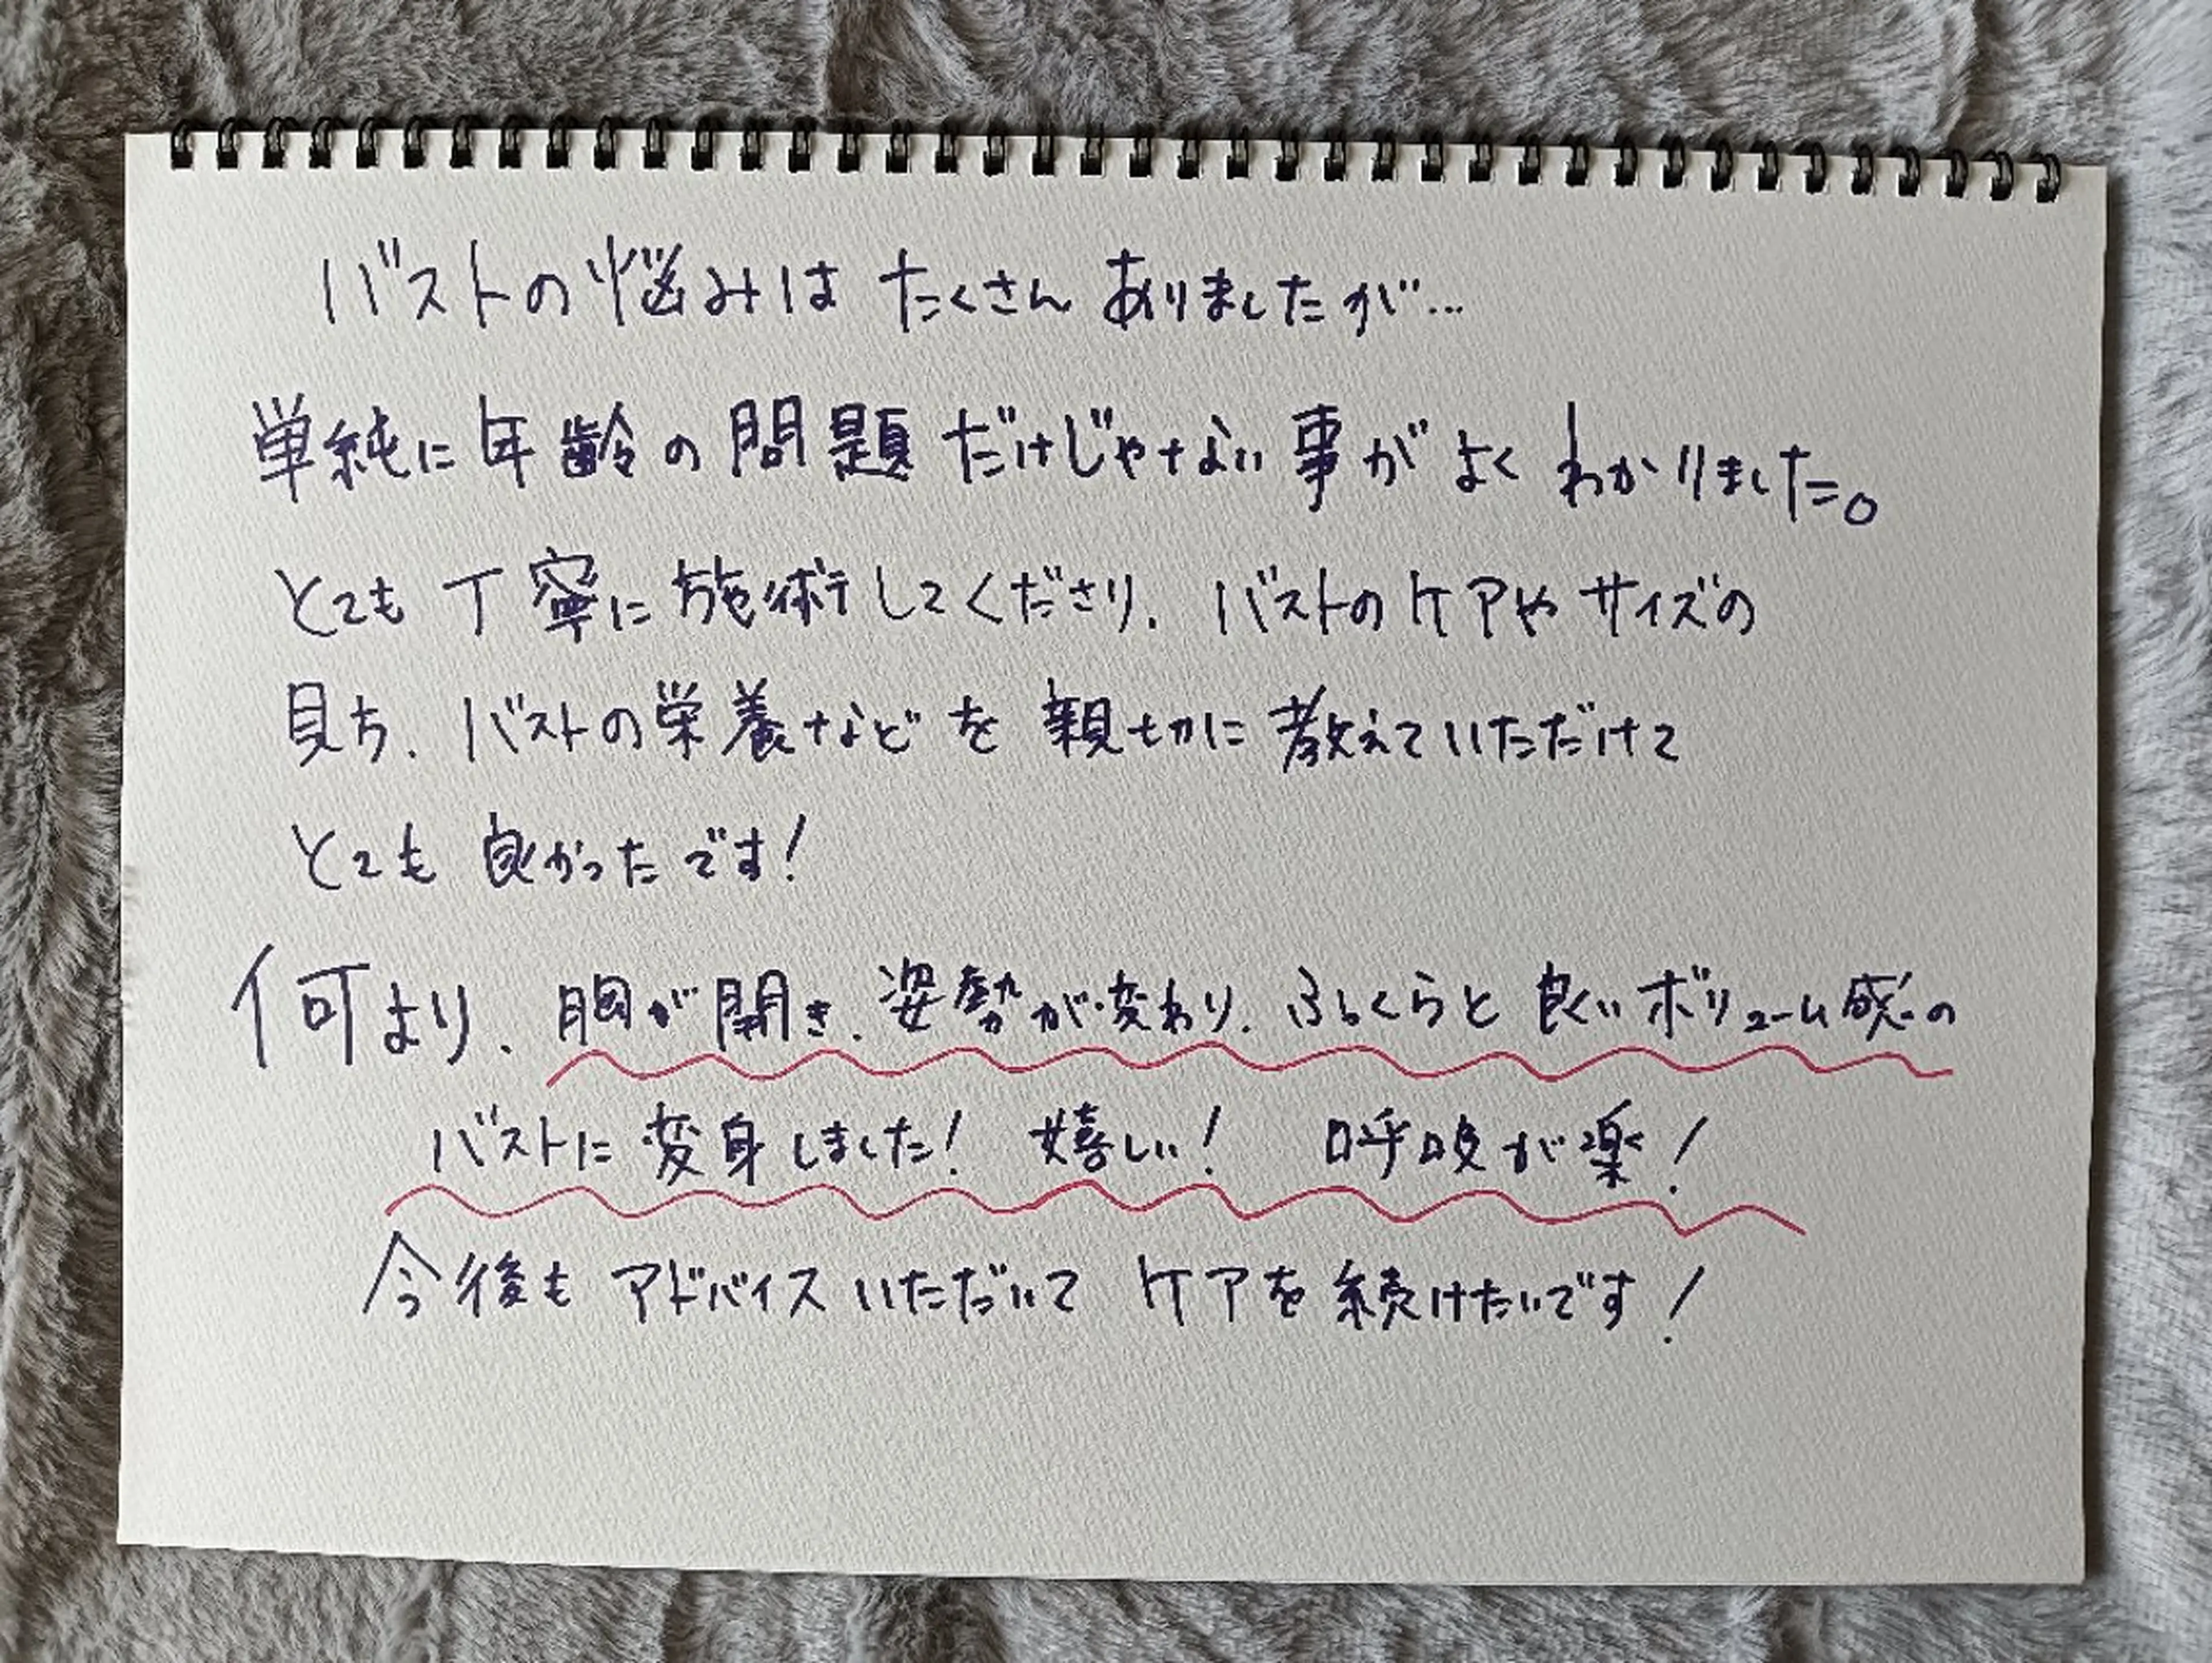 バストの悩みは たくさん ありましたが…
単純に年齢の問題だけじゃない事がよくわかりました。
とても丁寧に施術してくださり、バストのケアやサイズの
見方、バストの栄養などを親切に教えていただけて
とても良かったです!
何より、胸が開き、姿勢が変わり、ふっくらと良いボリューム感の
バストに変身しました! 嬉しい! 呼吸が楽!
今後もアドバイスいただいてケアを続けたいです!